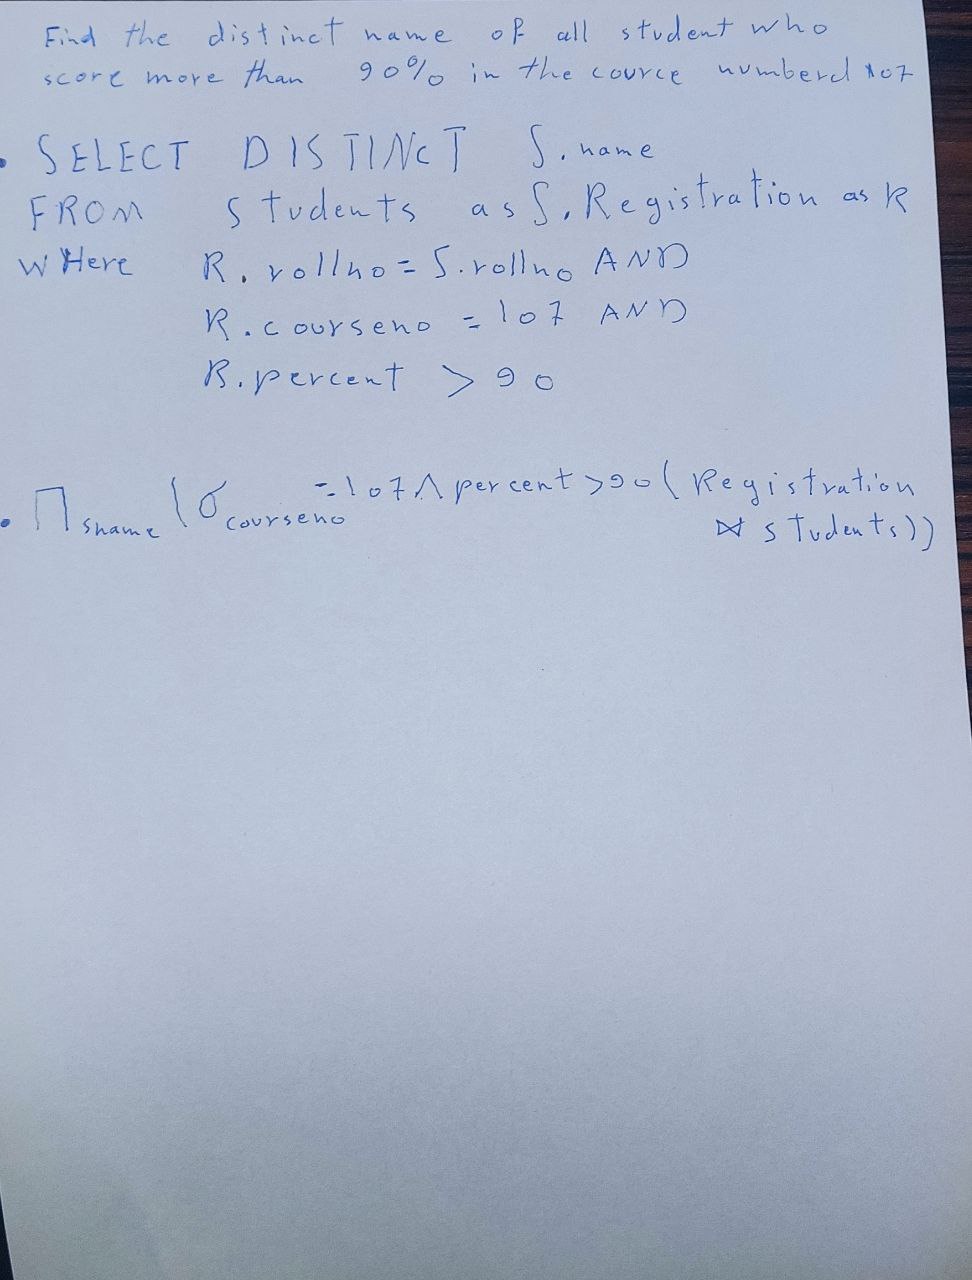 Find the distinct name of all student who
score more than 90% in the cource numberd 107
• SELECT DISTINCT S.name
FROM students as S, Registration as R
WHere R.rollno = S.rollno AND
R.courseno = 107 AND
R.percent > 90
• Π sname (σ courseno =107 ∧ percent >90 ( Registration
⋈ students))